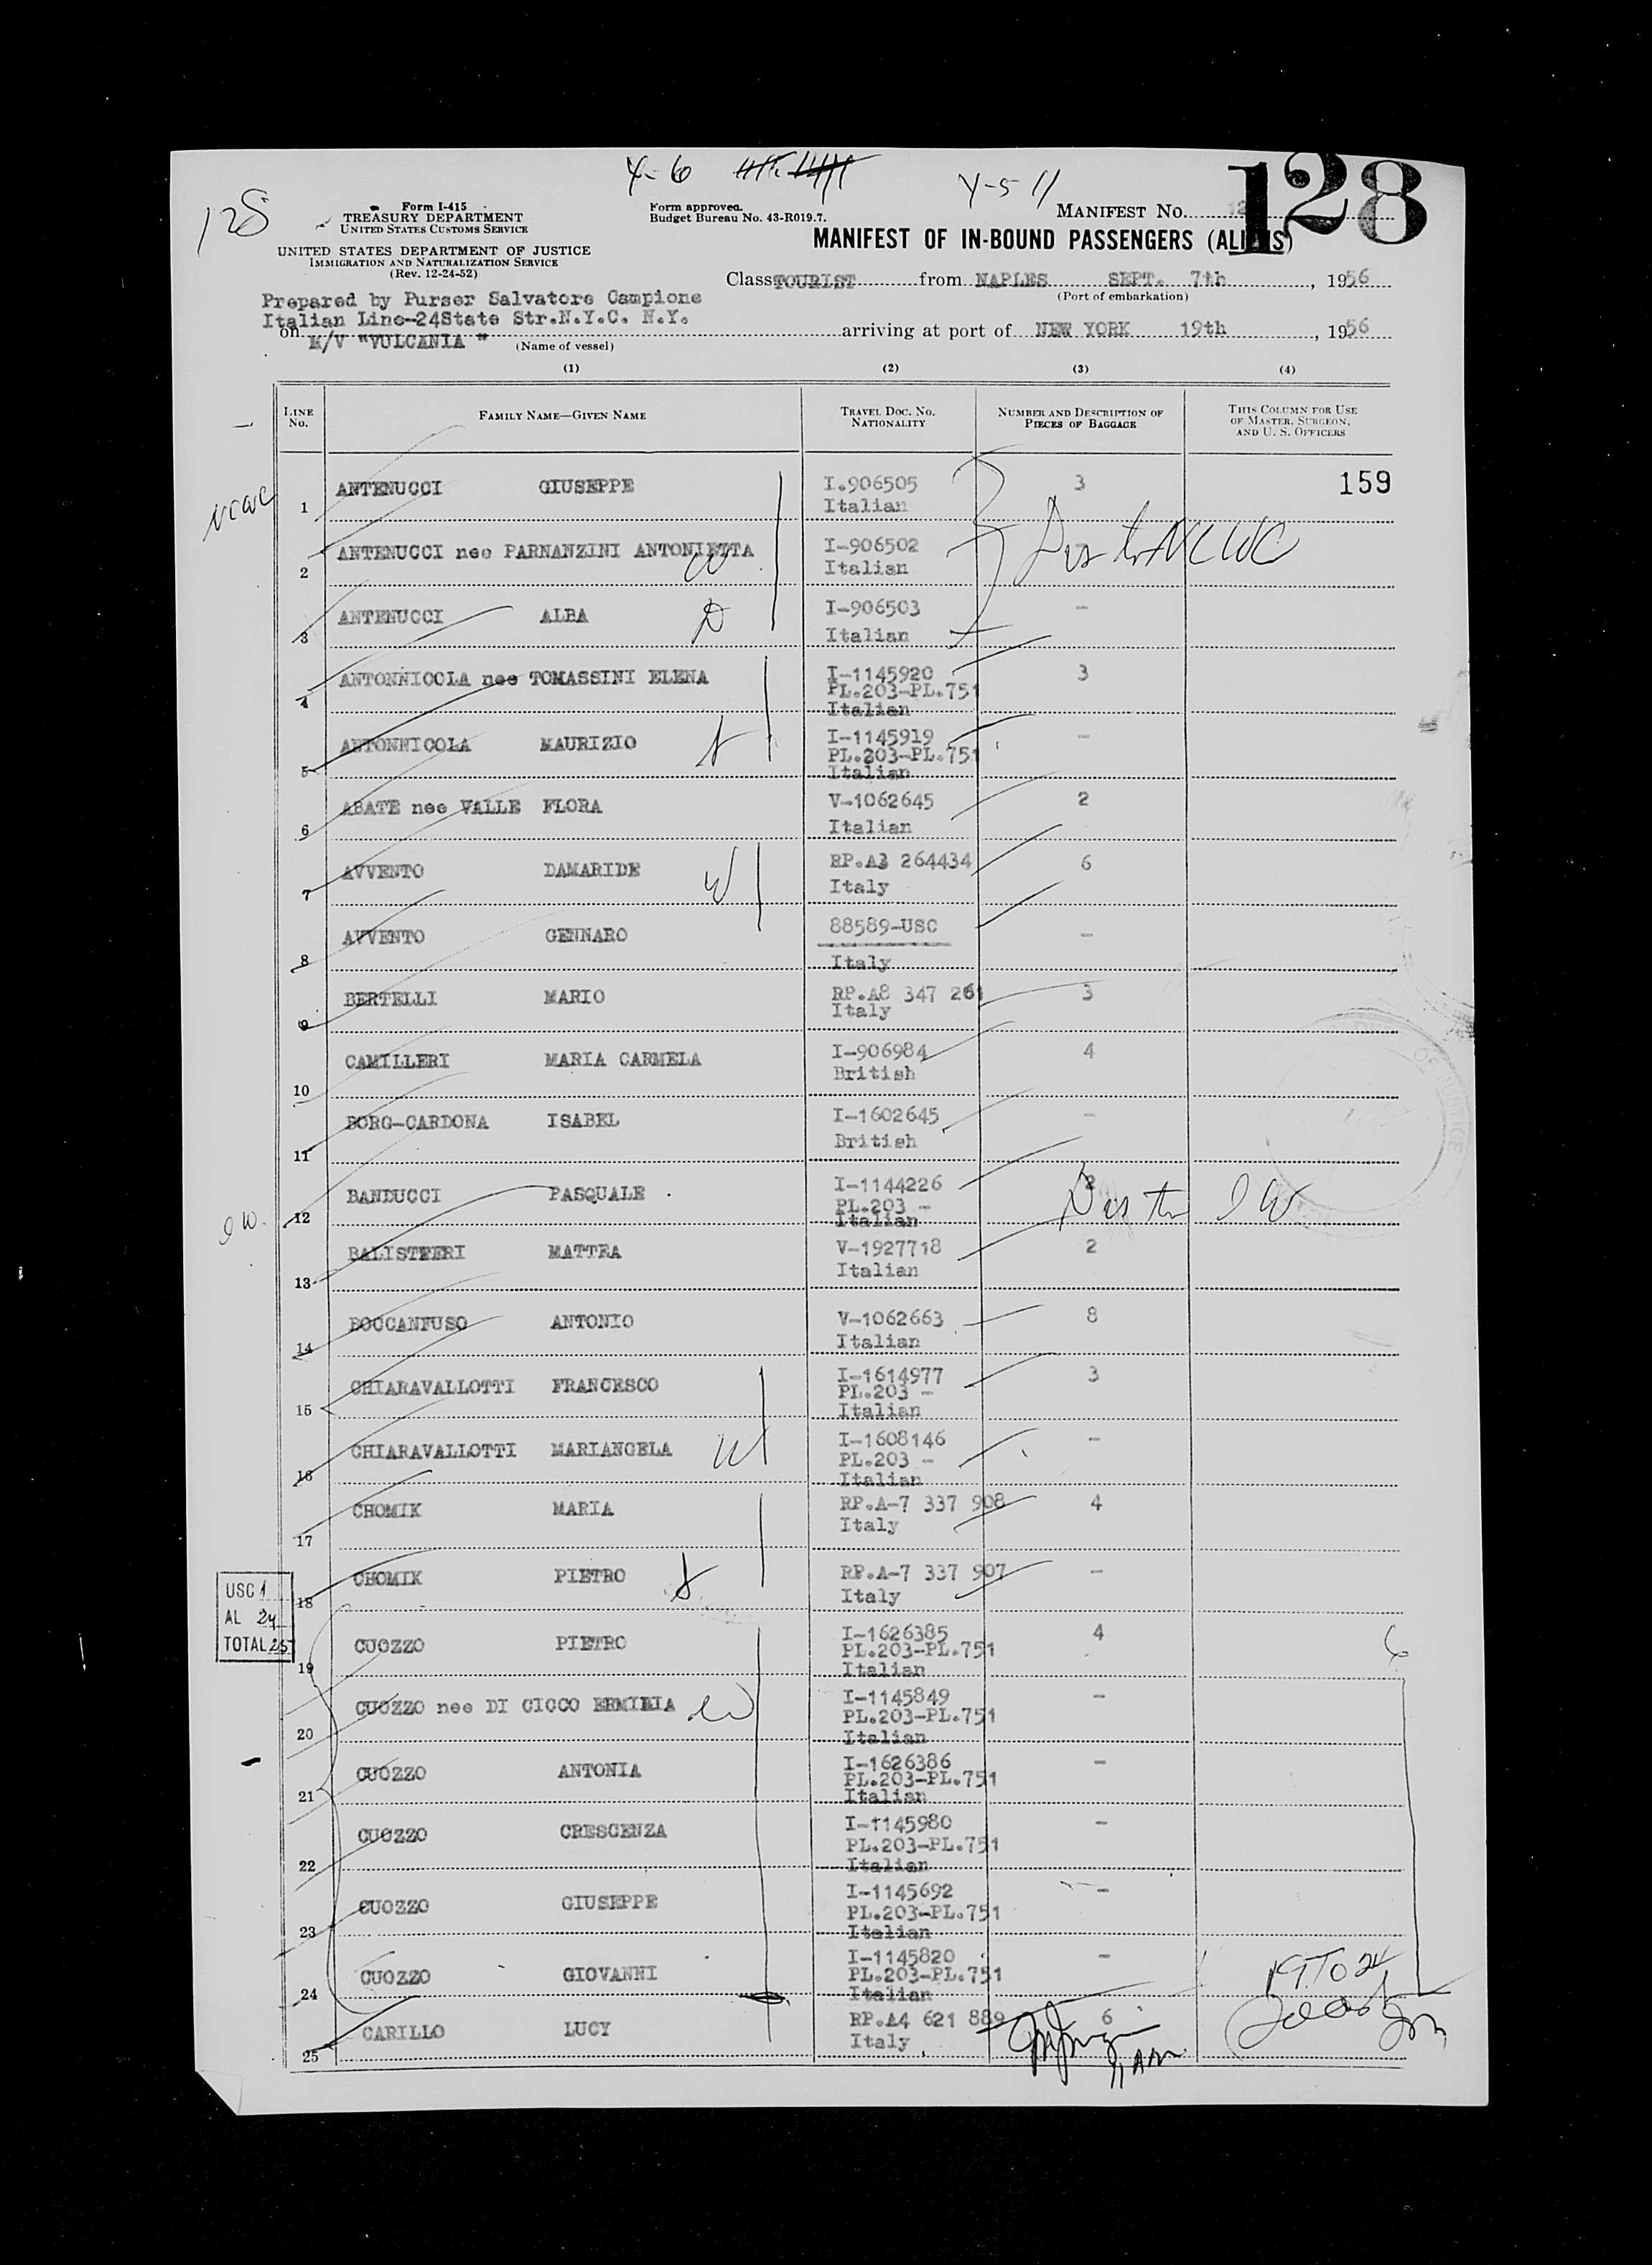 Y-6
Y-5 11
128
128
Form I-415
TREASURY DEPARTMENT
UNITED STATES CUSTOMS SERVICE
UNITED STATES DEPARTMENT OF JUSTICE
IMMIGRATION AND NATURALIZATION SERVICE
(Rev. 12-24-52)
Form approved.
Budget Bureau No. 43-R019.7.
MANIFEST No.
MANIFEST OF IN-BOUND PASSENGERS (ALIENS)
Class TOURIST from NAPLES SEPT. 7th, 1956
(Port of embarkation)
Prepared by Purser Salvatore Campione
Italian Line-24State Str.N.Y.C. N.Y.
on M/V "VULCANIA" arriving at port of NEW YORK 19th, 1956
(Name of vessel)
(1) (2) (3) (4)
LINE No. FAMILY NAME—GIVEN NAME TRAVEL DOC. NO. NATIONALITY NUMBER AND DESCRIPTION OF PIECES OF BAGGAGE THIS COLUMN FOR USE OF MASTER, SURGEON, AND U. S. OFFICERS
1 ANTENUCCI GIUSEPPE I.906505 3 159
Italian
NCWC
2 ANTENUCCI nee PARNANZINI ANTONIETTA I-906502
W Italian
NCWC
3 ANTENUCCI ALBA D I-906503 -
Italian
4 ANTONNICOLA nee TOMASSINI ELENA I-1145920 3
PL.203-PL.751
Italian
5 ANTONNICOLA MAURIZIO I-1145919 -
PL.203-PL.751
Italian
6 ABATE nee VALLE FLORA V-1062645 2
Italian
7 AVVENTO DAMARIDE W RP.A3 264434 6
Italy
8 AVVENTO GENNARO 88589-USC -
Italy
9 BERTELLI MARIO RP.A8 347 261 3
Italy
10 CAMILLERI MARIA CARMELA I-906984 4
British
11 BORG-CARDONA ISABEL I-1602645 -
British
12 BANDUCCI PASQUALE I-1144226 2
PL.203 -
Italian
13 BALISTRERI MATTEA V-1927718 2
Italian
14 BOCCANFUSO ANTONIO V-1062663 8
Italian
15 CHIARAVALLOTTI FRANCESCO I-1614977 3
PL.203 -
Italian
16 CHIARAVALLOTTI MARIANGELA W I-1608146 -
PL.203 -
Italian
17 CHOMIK MARIA RP.A-7 337 908 4
Italy
18 CHOMIK PIETRO RP.A-7 337 907 -
Italy
USC 1
AL 24
TOTAL 25
19 CUOZZO PIETRO I-1626385 4 6
PL.203-PL.751
Italian
20 CUOZZO nee DI CICCO ERMINIA W I-1145849 -
PL.203-PL.751
Italian
21 CUOZZO ANTONIA I-1626386 -
PL.203-PL.751
Italian
22 CUOZZO CRESCENZA I-1145980 -
PL.203-PL.751
Italian
23 CUOZZO GIUSEPPE I-1145692 -
PL.203-PL.751
Italian
24 CUOZZO GIOVANNI I-1145820 -
PL.203-PL.751
Italian
19 TO 24
25 CARILLO LUCY RP.A4 621 889 6
Italy
11 AM